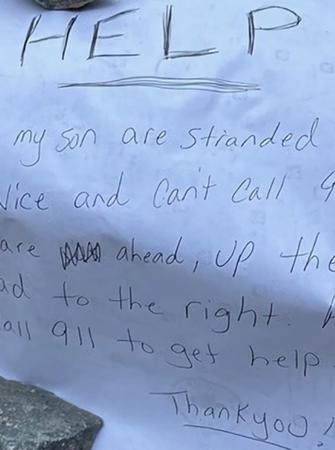 HELP
my son are stranded
and can't call 9
are ahead, up the
to the right.
911 to get help
Thankyou!